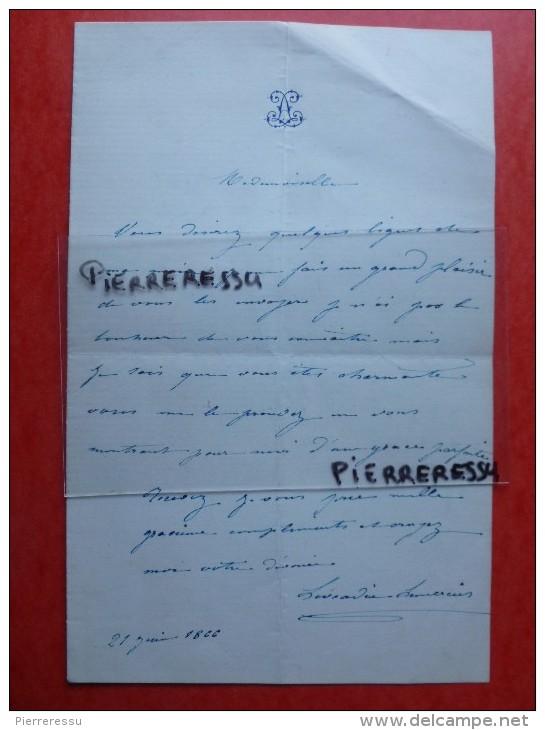 Mademoiselle
Vous désirez quelques lignes de
fais un grand plaisir
PIERRERESSU
de vous les envoyer je n'ai pas le
bonheur de vous connaitre mais
Je sais que vous êtes charmante
vous me le prouvez en vous
montrant pour moi d'une grace parfaite
PIERRERESSU
Recevez je vous prie mille
gracieux compliments et croyez
moi votre dévouée
Léocadie
21 juin 1866
Pierreressu
www.delcampe.net